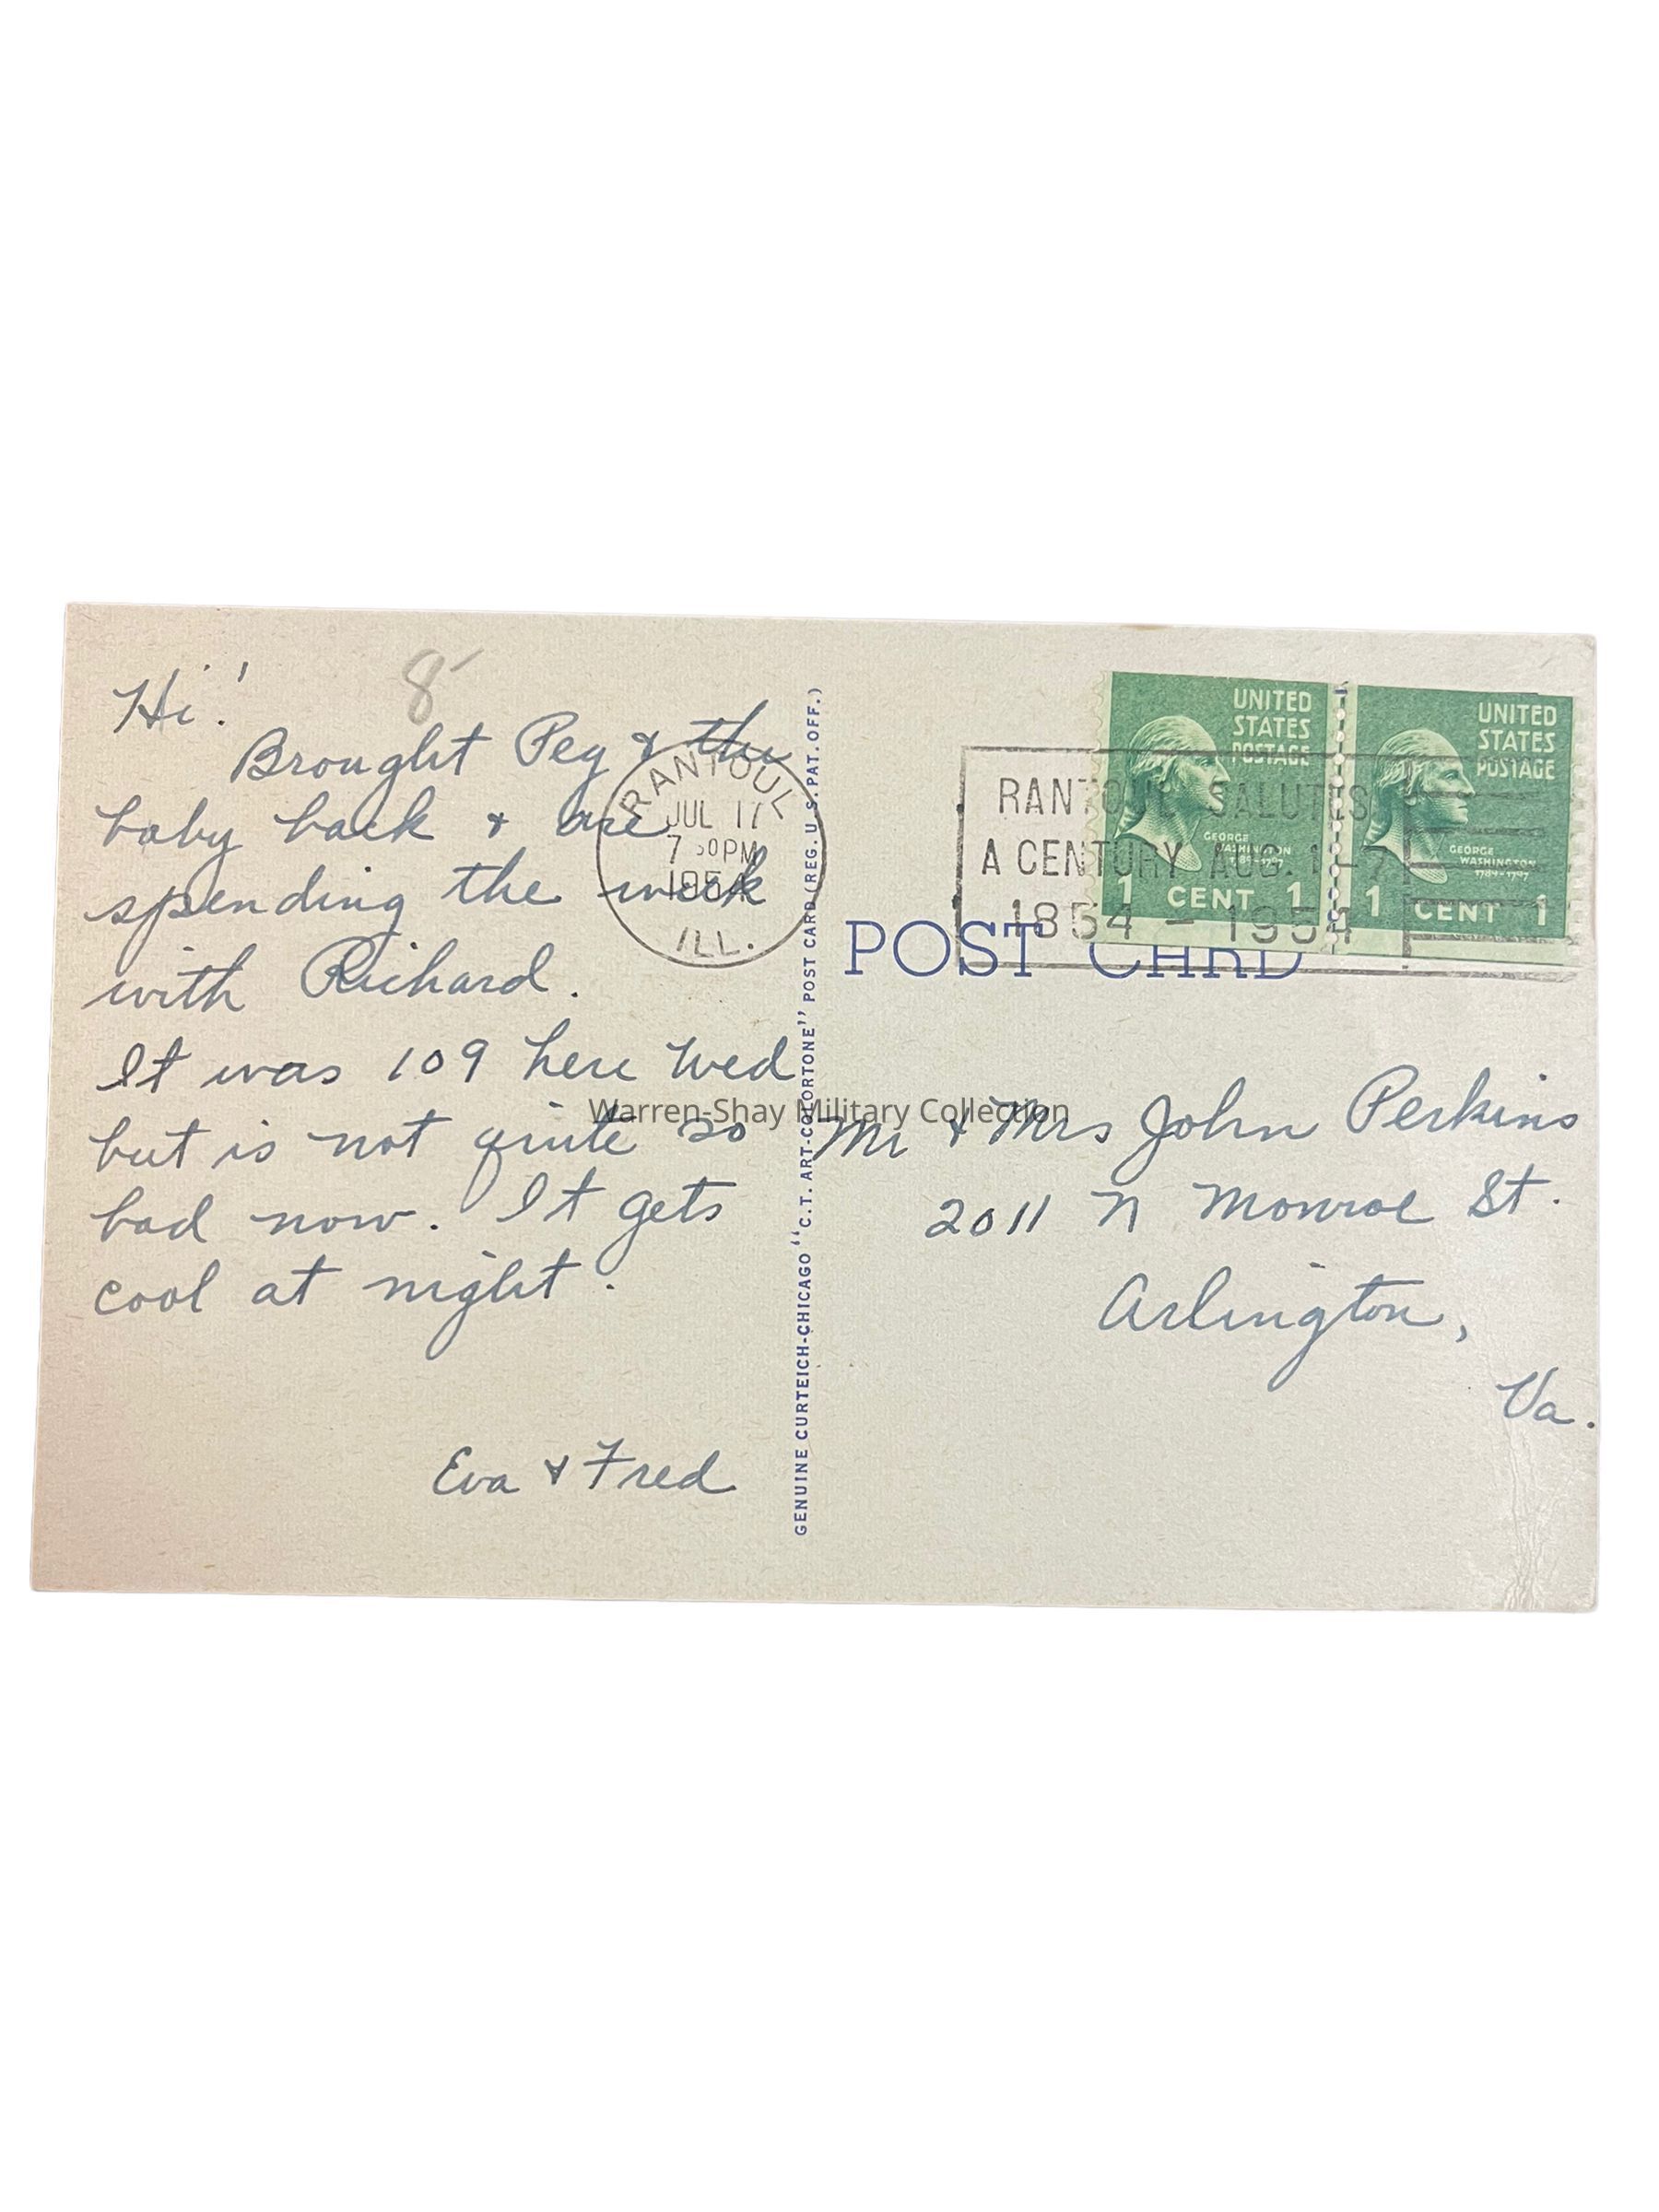 Hi!
8
Brought Peg & the
baby back & are
spending the week
with Richard.
It was 109 here Wed
but is not quite so
bad now. It gets
cool at night.
Eva & Fred
RANTOUL
JUL 17
7 30 PM
1954
ILL.
GENUINE CURTEICH-CHICAGO "C.T. ART-COLORTONE" POST CARD (REG. U.S. PAT. OFF.)
RANTOUL SALUTES
A CENTURY AUG. 1-7
1854 - 1954
UNITED
STATES
POSTAGE
GEORGE
WASHINGTON
1789-1797
1 CENT 1
UNITED
STATES
POSTAGE
GEORGE
WASHINGTON
1789-1797
1 CENT 1
POST CARD
Warren-Shay Military Collection
Mr & Mrs John Perkins
2011 N Monroe St.
Arlington,
Va.